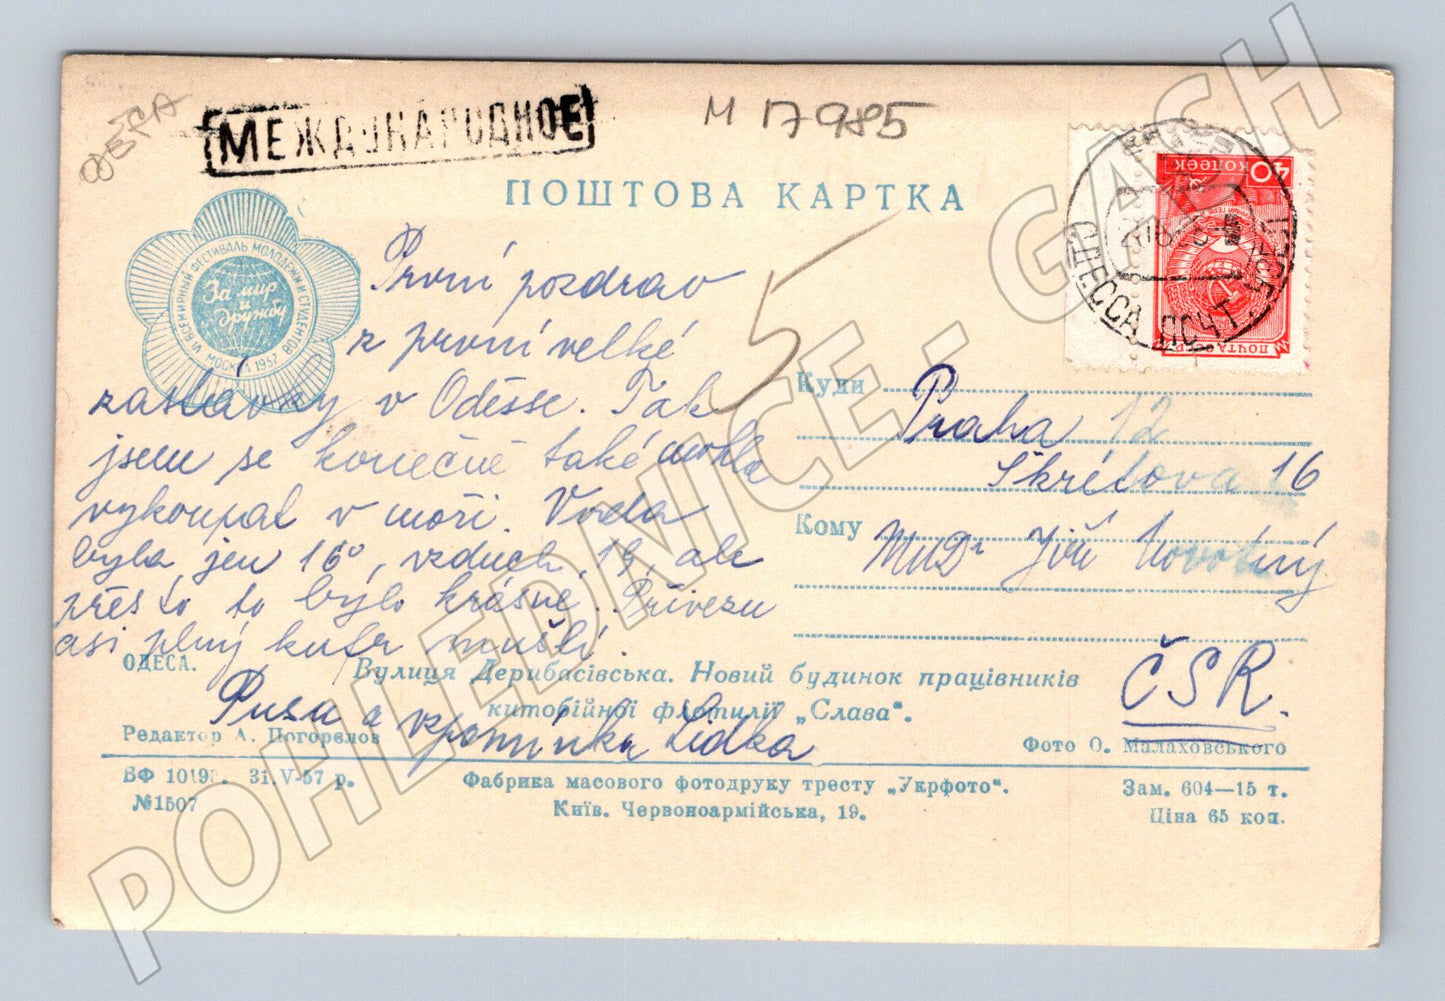 МЕЖДУНАРОДНОЕ
М 17985
ПОШТОВА КАРТКА
VI ВСЕМИРНЫЙ ФЕСТИВАЛЬ МОЛОДЕЖИ И СТУДЕНТОВ
За мир
и
дружбу
МОСКВА 1957
40
КОПЕЕК
ПОЧТА СССР
ОДЕССА ПОЧТ
5
První pozdrav
z první velké
zastávky v Odésse. Tak
jsem se konečně také mohla
vykoupat v moři. Voda
byla jen 16°, vzduch 19, ale
přesto to bylo krásné. Přivezu
asi plný kufr mušlí.
Pusu a vzpomínku Lidka
Куди
Praha 12
Škrétova 16
Кому
MUDr Jiří Novotný
ČSR.
ОДЕСА.
Вулиця Дерибасівська. Новий будинок працівників
китобійної флотилії „Слава“.
Редактор А. Погорелов
Фото О. Малаховського
БФ 1019 . 31.V-57 р.
№1507
Фабрика масового фотодруку тресту „Укрфото“.
Київ. Червоноармійська, 19.
Зам. 604—15 т.
Ціна 65 коп.
POHLEDNICE - GACH